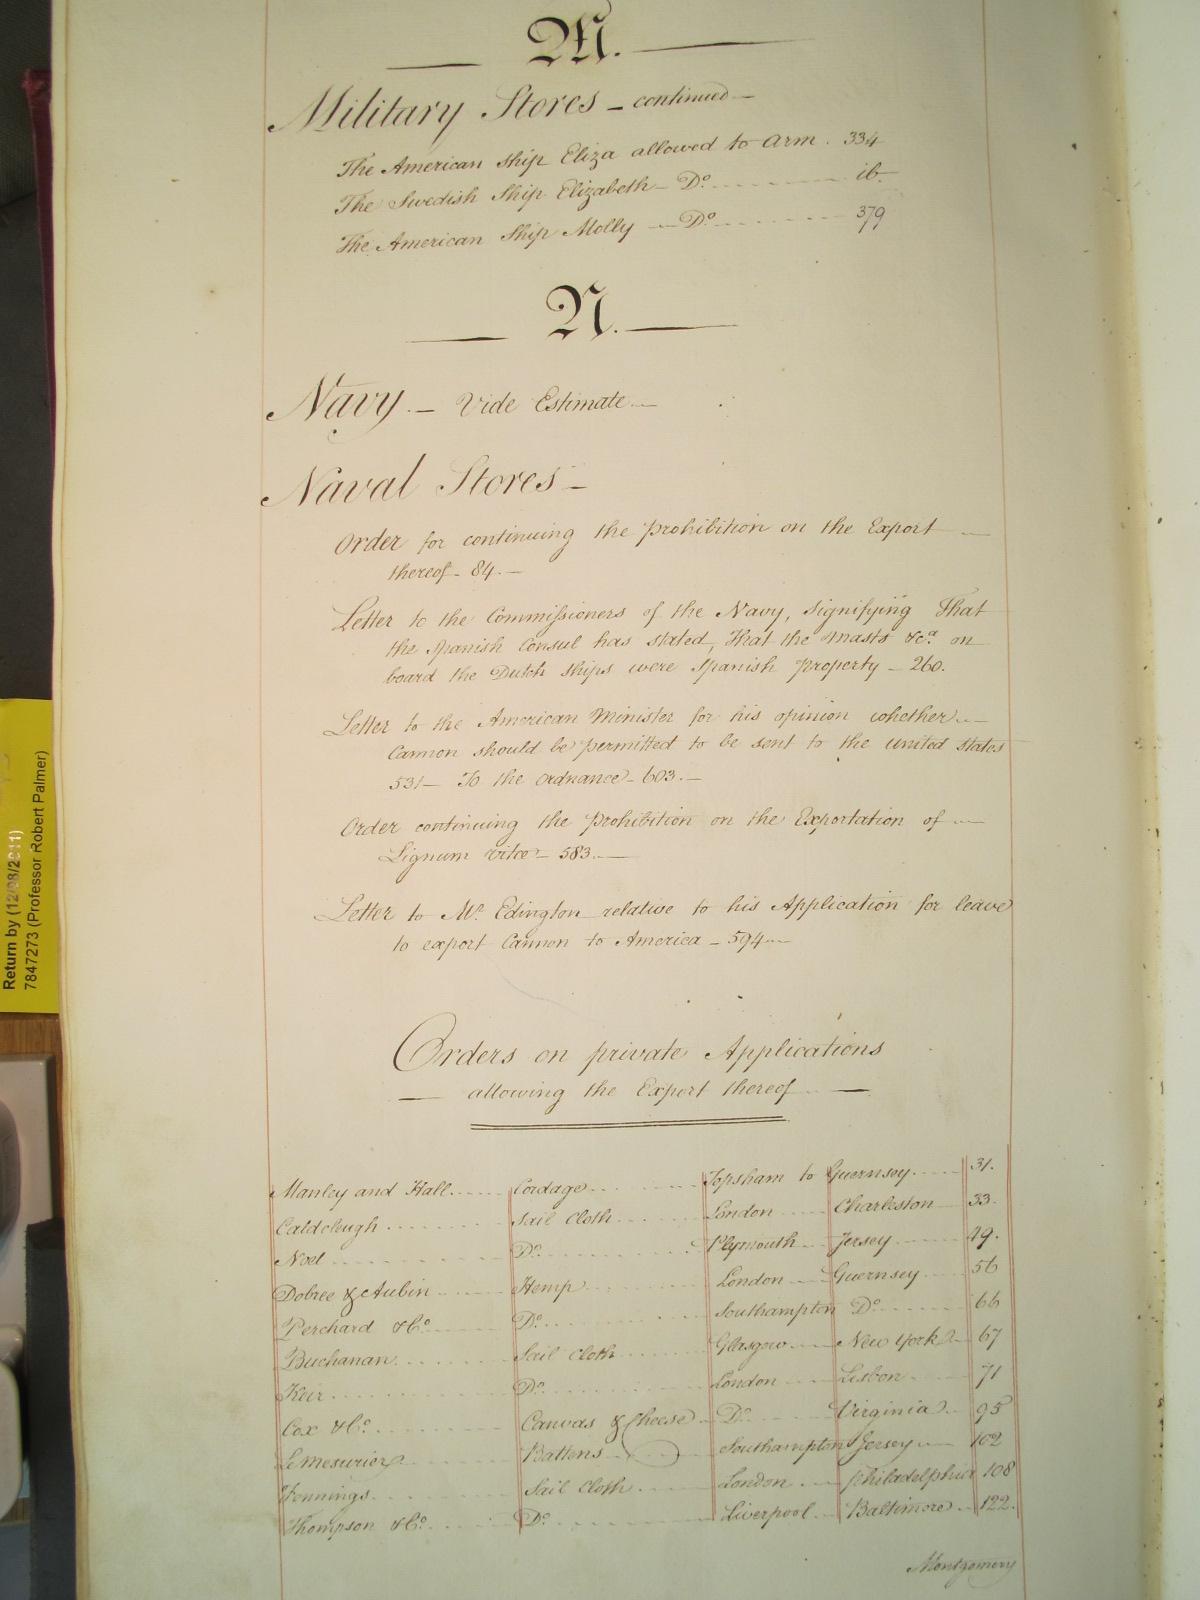 M.
Military Stores - continued -
The American Ship Eliza allowed to Arm . 334
The Swedish Ship Elizabeth - Do. ib.
The American Ship Molly - Do. 379
N.
Navy. - Vide Estimate -
Naval Stores -
Order for continuing the Prohibition on the Export
thereof - 84. -
Letter to the Commissioners of the Navy, signifying That
the Spanish Consul has stated, that the Masts &ca. on
board the Dutch Ships were Spanish property - 260.
Letter to the American Minister for his opinion whether
Cannon should be permitted to be sent to the United States
531 - To the Ordnance - 603. -
Order continuing the Prohibition on the Exportation of
Lignum Vitæ - 583. -
Letter to Mr. Edington relative to his Application for leave
to export Cannon to America - 594 -
Orders on private Applications
allowing the Export thereof
Manley and Hall Cordage Topsham to Guernsey 31.
Caldcleugh Sail Cloth London Charleston 33.
Noel Do. Plymouth Jersey 49.
Dobree & Aubin Hemp London Guernsey 56
Perchard & Co. Do. Southampton Do. 66
Buchanan Sail Cloth Glasgow New York 67
Keir Do. London Lisbon 71
Cox & Co. Canvas & Cheese Do. Virginia 95
LeMesurier Battens Southampton Jersey 102
Jennings Sail Cloth London Philadelphia 108
Thompson & Co. Do. Liverpool Baltimore 122.
Montgomery
Return by (12/08/2011)
7847273 (Professor Robert Palmer)